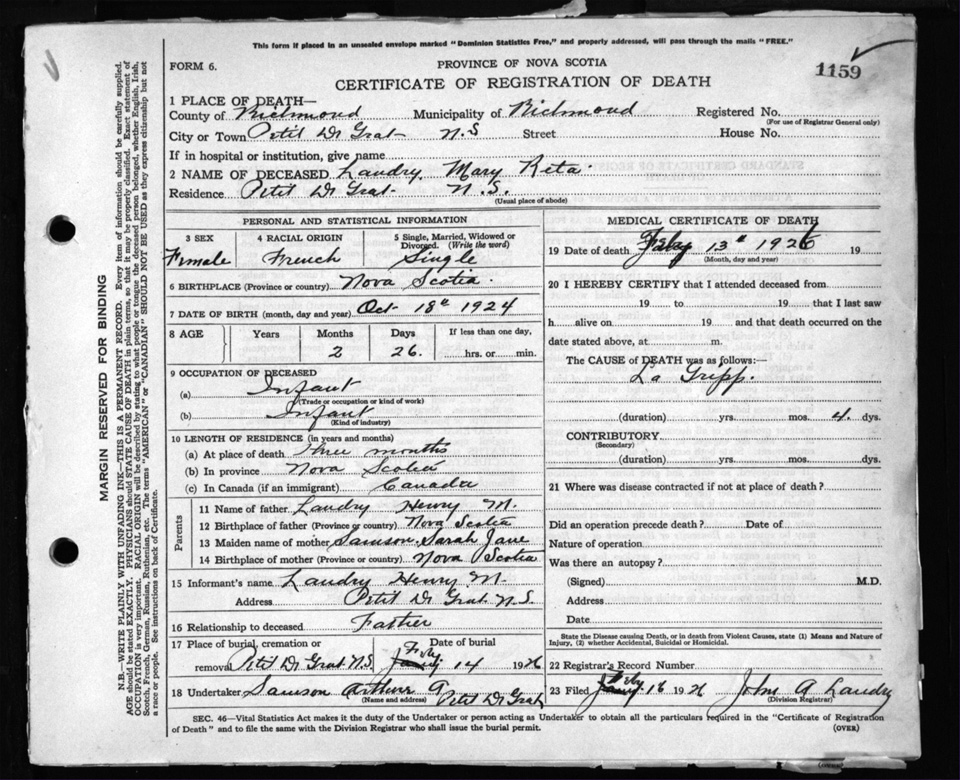 This form if placed in an unsealed envelope marked "Dominion Statistics Free," and properly addressed, will pass through the mails "FREE."
FORM 6.
PROVINCE OF NOVA SCOTIA
1159
CERTIFICATE OF REGISTRATION OF DEATH
1 PLACE OF DEATH—
County of Richmond Municipality of Richmond Registered No.
(For use of Registrar General only)
City or Town Petit De Grat N.S Street House No.
If in hospital or institution, give name
2 NAME OF DECEASED Landry Mary Reta
Residence Petit De Grat N.S.
(Usual place of abode)
PERSONAL AND STATISTICAL INFORMATION
3 SEX 4 RACIAL ORIGIN 5 Single, Married, Widowed or Divorced. (Write the word)
Female French Single
6 BIRTHPLACE (Province or country) Nova Scotia
7 DATE OF BIRTH (month, day and year) Oct 18th 1924
8 AGE Years Months Days If less than one day,
2 26. hrs. or min.
9 OCCUPATION OF DECEASED
(a) Infant
(Trade or occupation or kind of work)
(b) Infant
(Kind of industry)
10 LENGTH OF RESIDENCE (in years and months)
(a) At place of death three months
(b) In province Nova Scotia
(c) In Canada (if an immigrant) Canada
Parents
11 Name of father Landry Henry M.
12 Birthplace of father (Province or country) Nova Scotia
13 Maiden name of mother Samson Sarah Jane
14 Birthplace of mother (Province or country) Nova Scotia
15 Informant's name Landry Henry M.
Address Petit De Grat N.S.
16 Relationship to deceased Father
17 Place of burial, cremation or removal Petit De Grat N.S. Date of burial Feby 14 1926
18 Undertaker Samson Arthur Petit De Grat
(Name and address)
MEDICAL CERTIFICATE OF DEATH
19 Date of death Feby 13th 1926 19
(Month, day and year)
20 I HEREBY CERTIFY that I attended deceased from
19 to 19 that I last saw
h alive on 19 and that death occurred on the
date stated above, at m.
The CAUSE of DEATH was as follows:—
La Gripp.
(duration) yrs. mos. 4. dys.
CONTRIBUTORY
(Secondary)
(duration) yrs. mos. dys.
21 Where was disease contracted if not at place of death?
Did an operation precede death? Date of
Nature of operation
Was there an autopsy?
(Signed) M.D.
Address
Date
State the Disease causing Death, or in death from Violent Causes, state (1) Means and Nature of Injury, (2) whether Accidental, Suicidal or Homicidal.
22 Registrar's Record Number
23 Filed Feby 16 1926 John A Landry
(Division Registrar)
SEC. 46—Vital Statistics Act makes it the duty of the Undertaker or person acting as Undertaker to obtain all the particulars required in the "Certificate of Registration
of Death" and to file the same with the Division Registrar who shall issue the burial permit. (OVER)
MARGIN RESERVED FOR BINDING
N.B.—WRITE PLAINLY WITH UNFADING INK—THIS IS A PERMANENT RECORD. Every item of information should be carefully supplied.
AGE should be stated EXACTLY. PHYSICIANS should STATE CAUSE OF DEATH in plain terms, so that it may be properly classified. Exact statement of
OCCUPATION is very important. RACIAL ORIGIN will be described by stating to what people or tongue the deceased person belonged, whether English, Irish,
Scotch, French, German, Russian, Ruthenian, etc. The terms "AMERICAN" or "CANADIAN" SHOULD NOT BE USED as they express citizenship but not
a race or people. See instructions on back of Certificate.